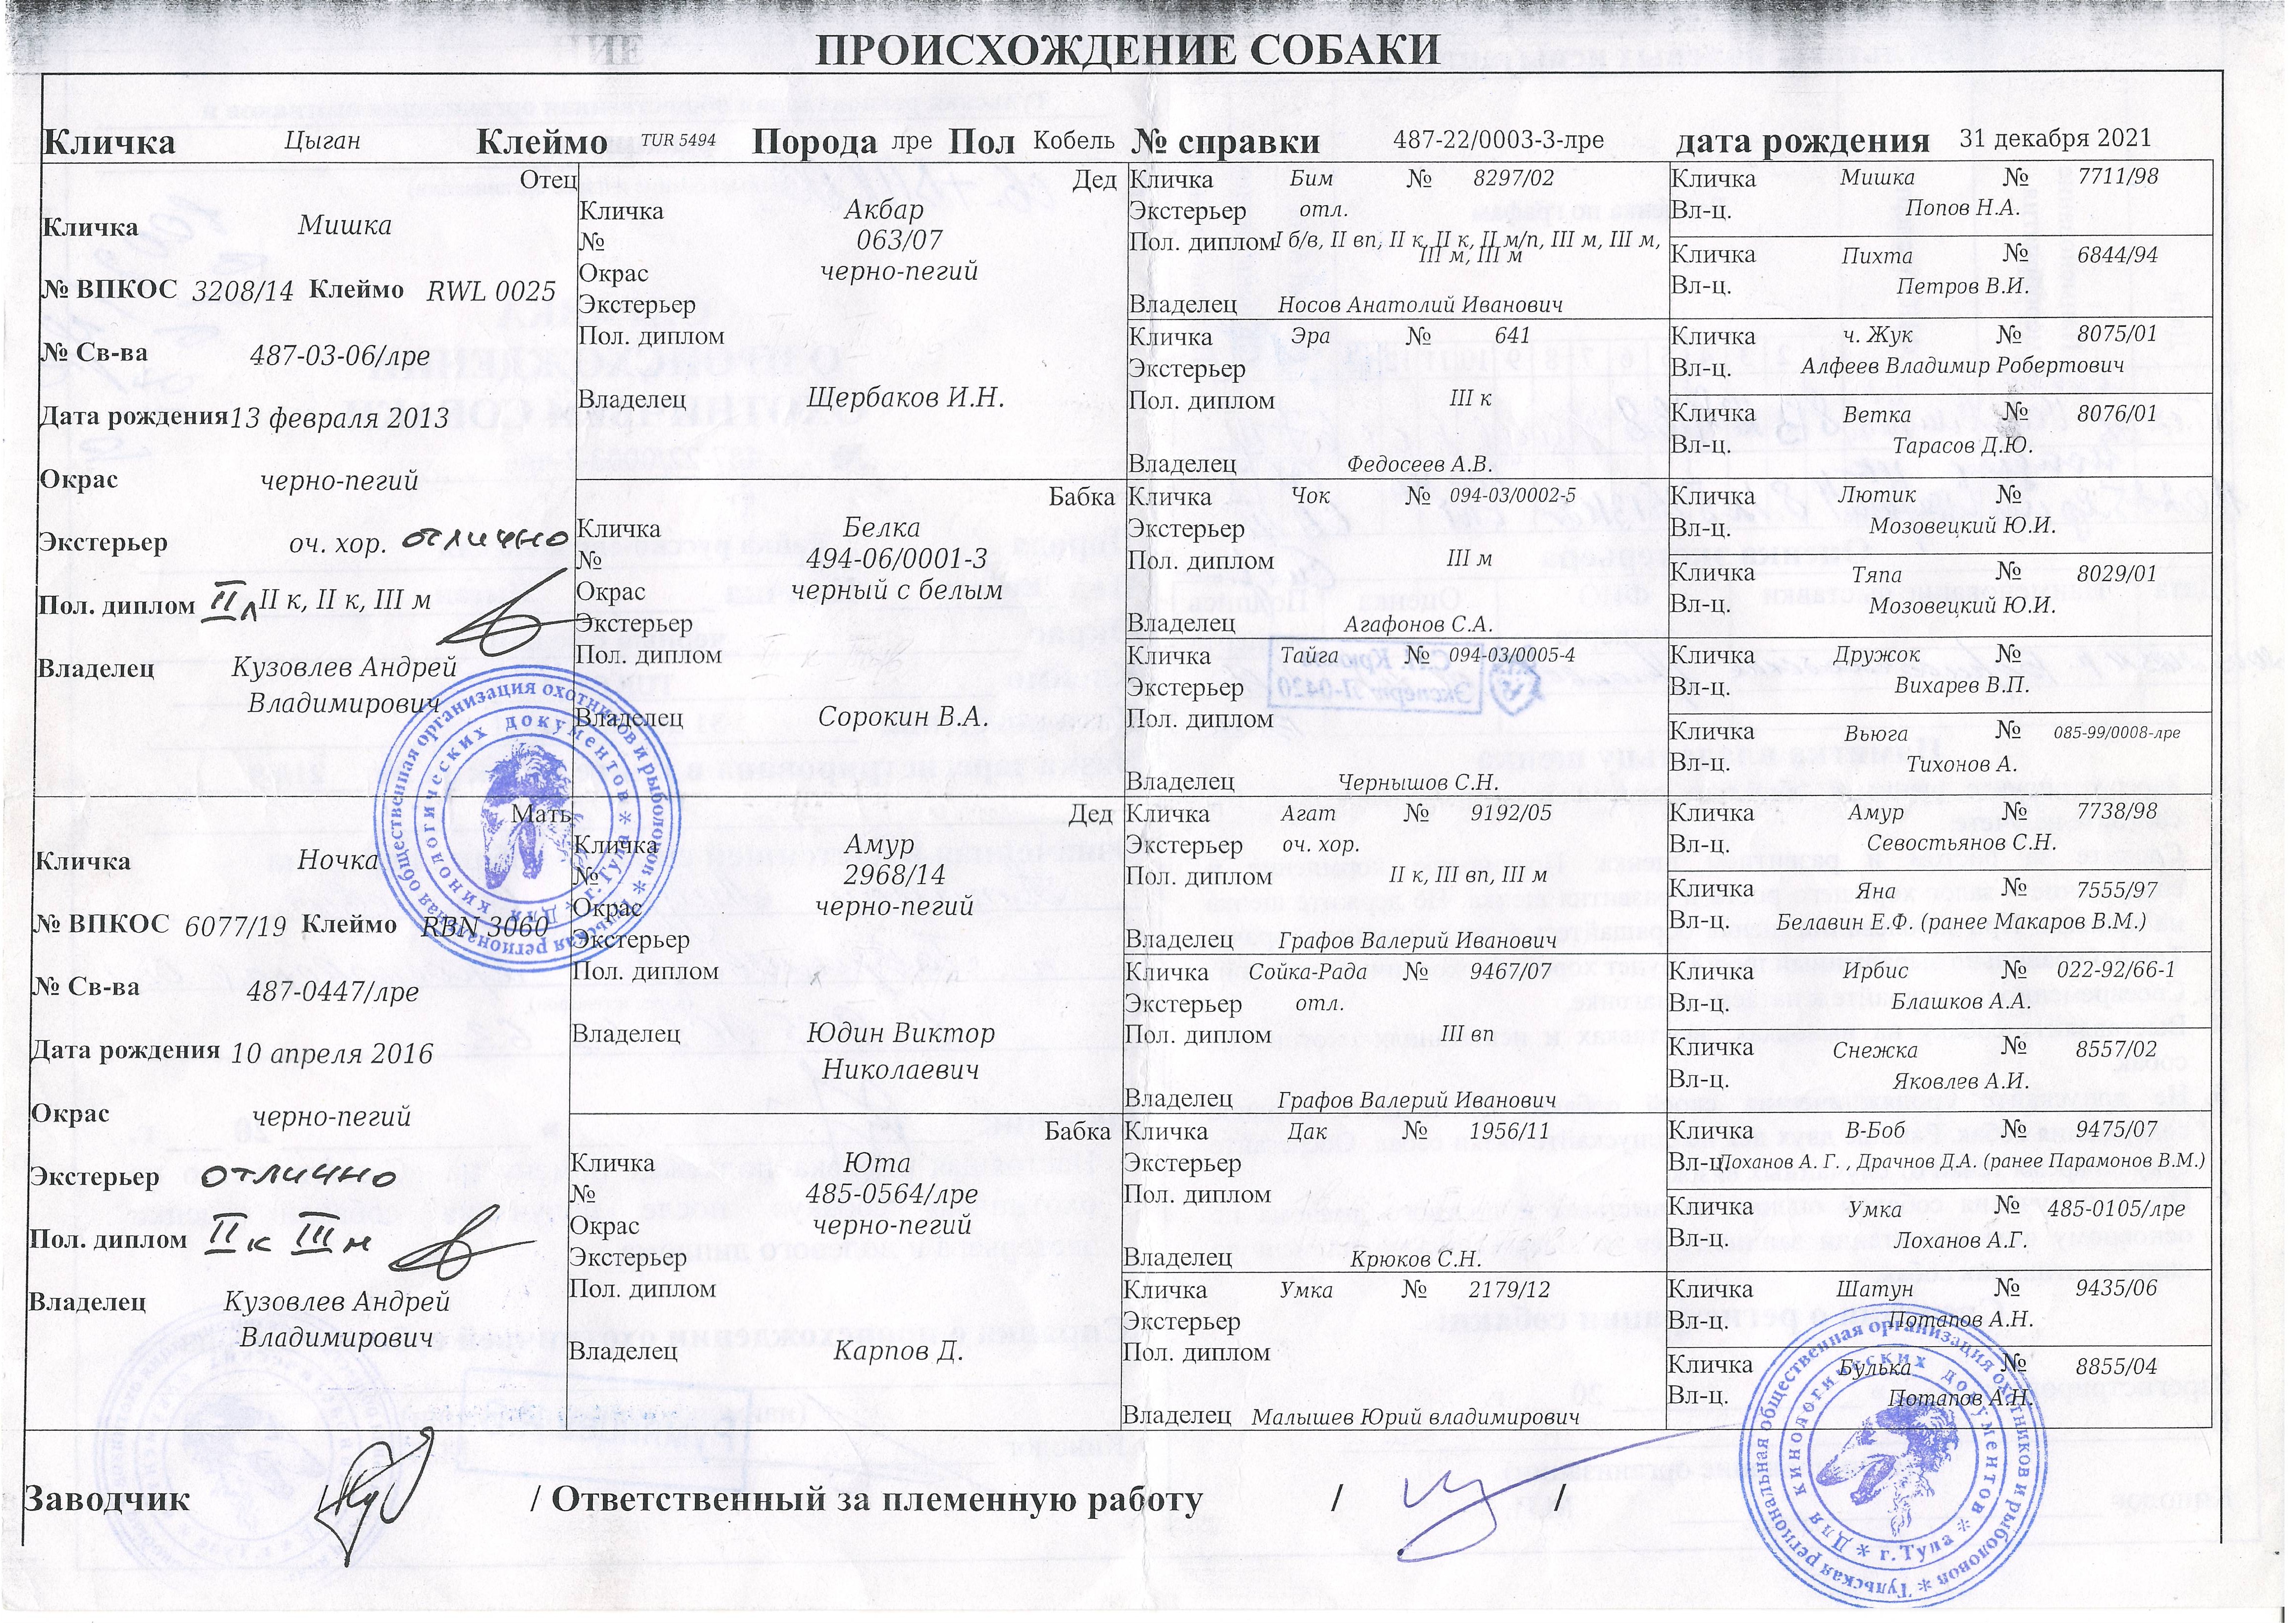 ПРОИСХОЖДЕНИЕ СОБАКИ
Кличка Цыган Клеймо TUR 5494 Порода лре Пол Кобель № справки 487-22/0003-3-лре дата рождения 31 декабря 2021
Отец
Кличка Мишка
№ ВПКОС 3208/14 Клеймо RWL 0025
№ Св-ва 487-03-06/лре
Дата рождения 13 февраля 2013
Окрас черно-пегий
Экстерьер оч. хор. отлично
Пол. диплом II л II к, II к, III м
Владелец Кузовлев Андрей
Владимирович
Мать
Кличка Ночка
№ ВПКОС 6077/19 Клеймо RBN 3060
№ Св-ва 487-0447/лре
Дата рождения 10 апреля 2016
Окрас черно-пегий
Экстерьер отлично
Пол. диплом II к III м
Владелец Кузовлев Андрей
Владимирович
Дед
Кличка Акбар
№ 063/07
Окрас черно-пегий
Экстерьер
Пол. диплом
Владелец Щербаков И.Н.
Бабка
Кличка Белка
№ 494-06/0001-3
Окрас черный с белым
Экстерьер
Пол. диплом
Владелец Сорокин В.А.
Дед
Кличка Амур
№ 2968/14
Окрас черно-пегий
Экстерьер
Пол. диплом
Владелец Юдин Виктор
Николаевич
Бабка
Кличка Юта
№ 485-0564/лре
Окрас черно-пегий
Экстерьер
Пол. диплом
Владелец Карпов Д.
Кличка Бим № 8297/02
Экстерьер отл.
Пол. диплом I б/в, II вп, II к, II к, II м/п, III м, III м,
III м, III м
Владелец Носов Анатолий Иванович
Кличка Эра № 641
Экстерьер
Пол. диплом III к
Владелец Федосеев А.В.
Кличка Чок № 094-03/0002-5
Экстерьер
Пол. диплом III м
Владелец Агафонов С.А.
Кличка Тайга № 094-03/0005-4
Экстерьер
Пол. диплом
Владелец Чернышов С.Н.
Кличка Агат № 9192/05
Экстерьер оч. хор.
Пол. диплом II к, III вп, III м
Владелец Графов Валерий Иванович
Кличка Сойка-Рада № 9467/07
Экстерьер отл.
Пол. диплом III вп
Владелец Графов Валерий Иванович
Кличка Дак № 1956/11
Экстерьер
Пол. диплом
Владелец Крюков С.Н.
Кличка Умка № 2179/12
Экстерьер
Пол. диплом
Владелец Малышев Юрий владимирович
Кличка Мишка № 7711/98
Вл-ц. Попов Н.А.
Кличка Пихта № 6844/94
Вл-ц. Петров В.И.
Кличка ч. Жук № 8075/01
Вл-ц. Алфеев Владимир Робертович
Кличка Ветка № 8076/01
Вл-ц. Тарасов Д.Ю.
Кличка Лютик №
Вл-ц. Мозовецкий Ю.И.
Кличка Тяпа № 8029/01
Вл-ц. Мозовецкий Ю.И.
Кличка Дружок №
Вл-ц. Вихарев В.П.
Кличка Вьюга № 085-99/0008-лре
Вл-ц. Тихонов А.
Кличка Амур № 7738/98
Вл-ц. Севостьянов С.Н.
Кличка Яна № 7555/97
Вл-ц. Белавин Е.Ф. (ранее Макаров В.М.)
Кличка Ирбис № 022-92/66-1
Вл-ц. Блашков А.А.
Кличка Снежка № 8557/02
Вл-ц. Яковлев А.И.
Кличка В-Боб № 9475/07
Вл-ц. Лоханов А. Г. , Драчнов Д.А. (ранее Парамонов В.М.)
Кличка Умка № 485-0105/лре
Вл-ц. Лоханов А.Г.
Кличка Шатун № 9435/06
Вл-ц. Потапов А.Н.
Кличка Булька № 8855/04
Вл-ц. Потапов А.Н.
Заводчик / Ответственный за племенную работу / /
Тульская региональная общественная организация охотников и рыболовов *
Для кинологических документов * г. Тула *
Тульская региональная общественная организация охотников и рыболовов *
Для кинологических документов * г. Тула *